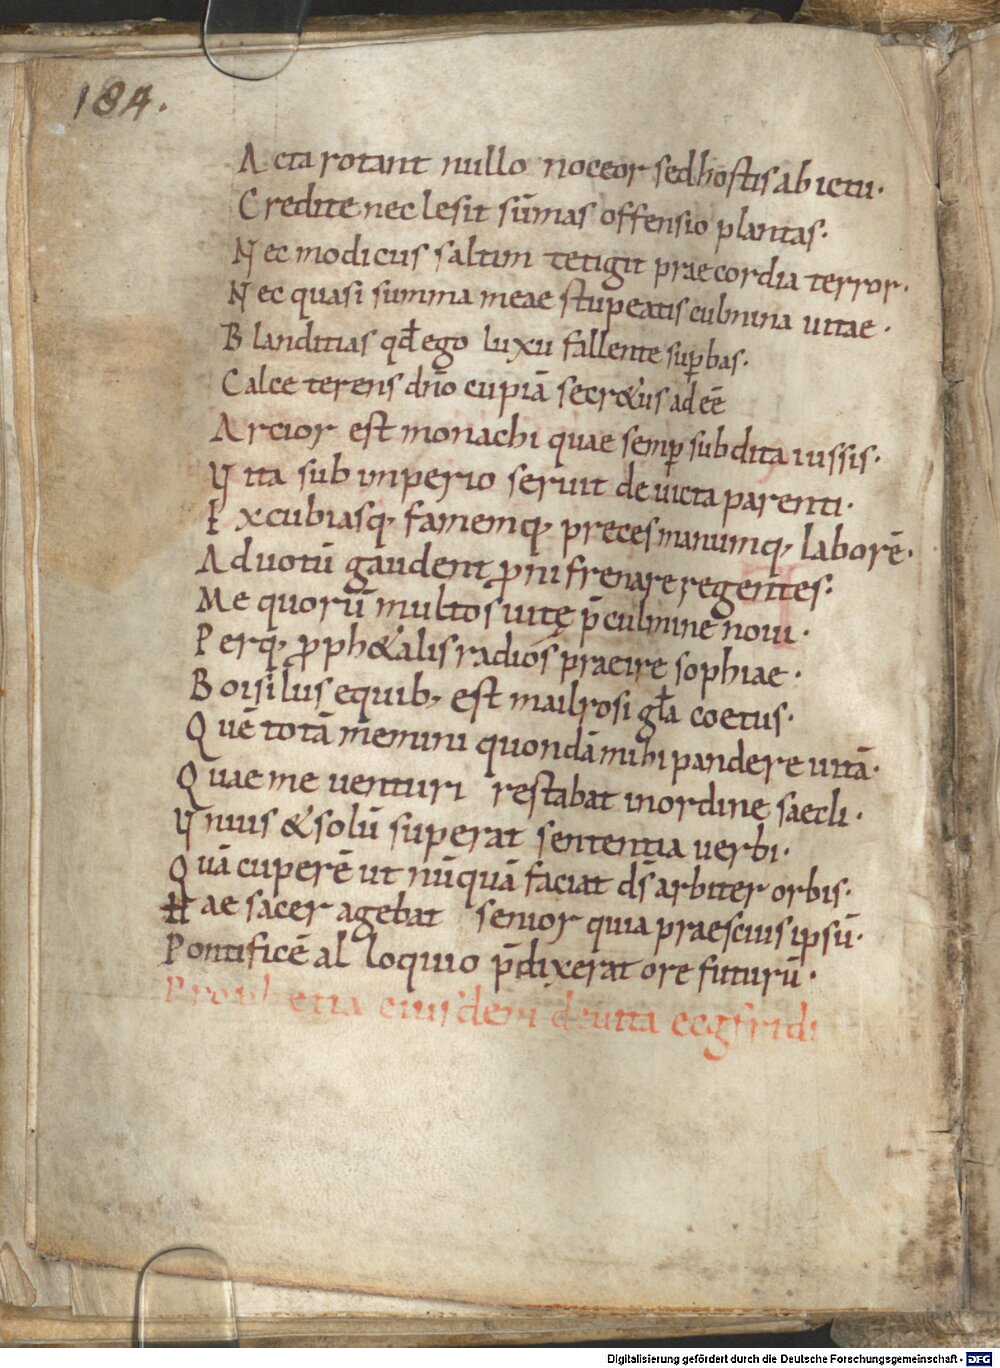 184.
Acta rotant nullo noceor sed hostis ab ictu·
Credite nec lesit sūmas offensio plantas·
Nec modicus saltim tetigit praecordia terror·
Nec quasi summa meae stupeatis culmina uitae·
Blanditias qđ ego luxu fallente suꝑbas·
Calce terens dño cupiā secr&ius adeē
Arcior est monachi quae semꝑ subdita iussis·
Vita sub imperio seruit deuicta parenti·
Excubiasq, famemq, preces manumq, laborē·
Ad uotū gaudent ꝓni frenare regentes·
Me quorū multos uitę p̄ culmine noui·
Perq, ꝓph&alis radios praeire sophiae·
Boisilus equib, est mailrosi gła coetus·
Quē totā memini quondā mihi pandere uitā·
Quae me uenturi restabat in ordine saecli·
Vnius & solū superat sententia uerbi·
Quā cuperē ut nūquā faciat ds̄ arbiter orbis·
Haec sacer agebat senior quia praescius ipsū·
Pontificē al loquio p̄dixerat ore futurū·
Prophetia eiusdem de uita ecgfridi
Digitalisierung gefördert durch die Deutsche Forschungsgemeinschaft - DFG